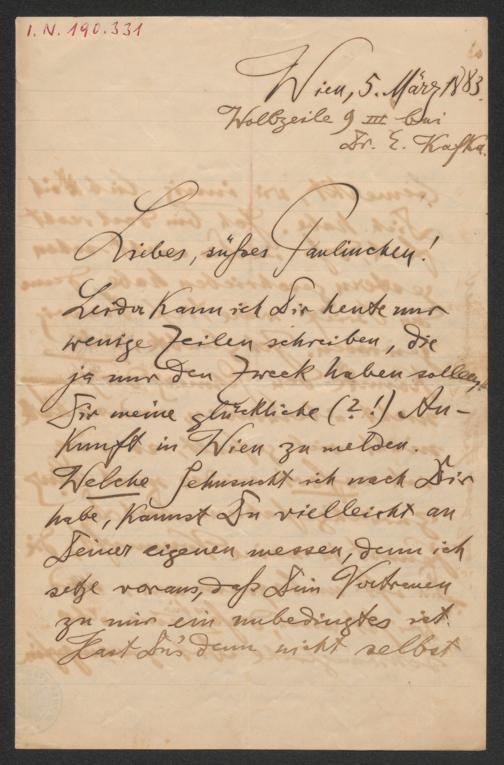 I. N. 190.331
Wien, 5. März 1883.
Wollzeile 9 III bei
Dr. E. Kafka.
Liebes, süßes Paulinchen!
Leider kann ich Dir heute nur
wenige Zeilen schreiben, die
ja nur den Zweck haben sollen,
Dir meine glückliche (?!) An-
kunft in Wien zu melden.
Welche Sehnsucht ich nach Dir
habe, kannst Du vielleicht an
Deiner eigenen messen, denn ich
setze voraus, daß Dein Vertrauen
zu mir ein unbedingtes ist.
Hast Du's denn nicht selbst